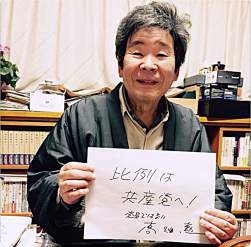 比例は
共産党へ!
高畑 勲